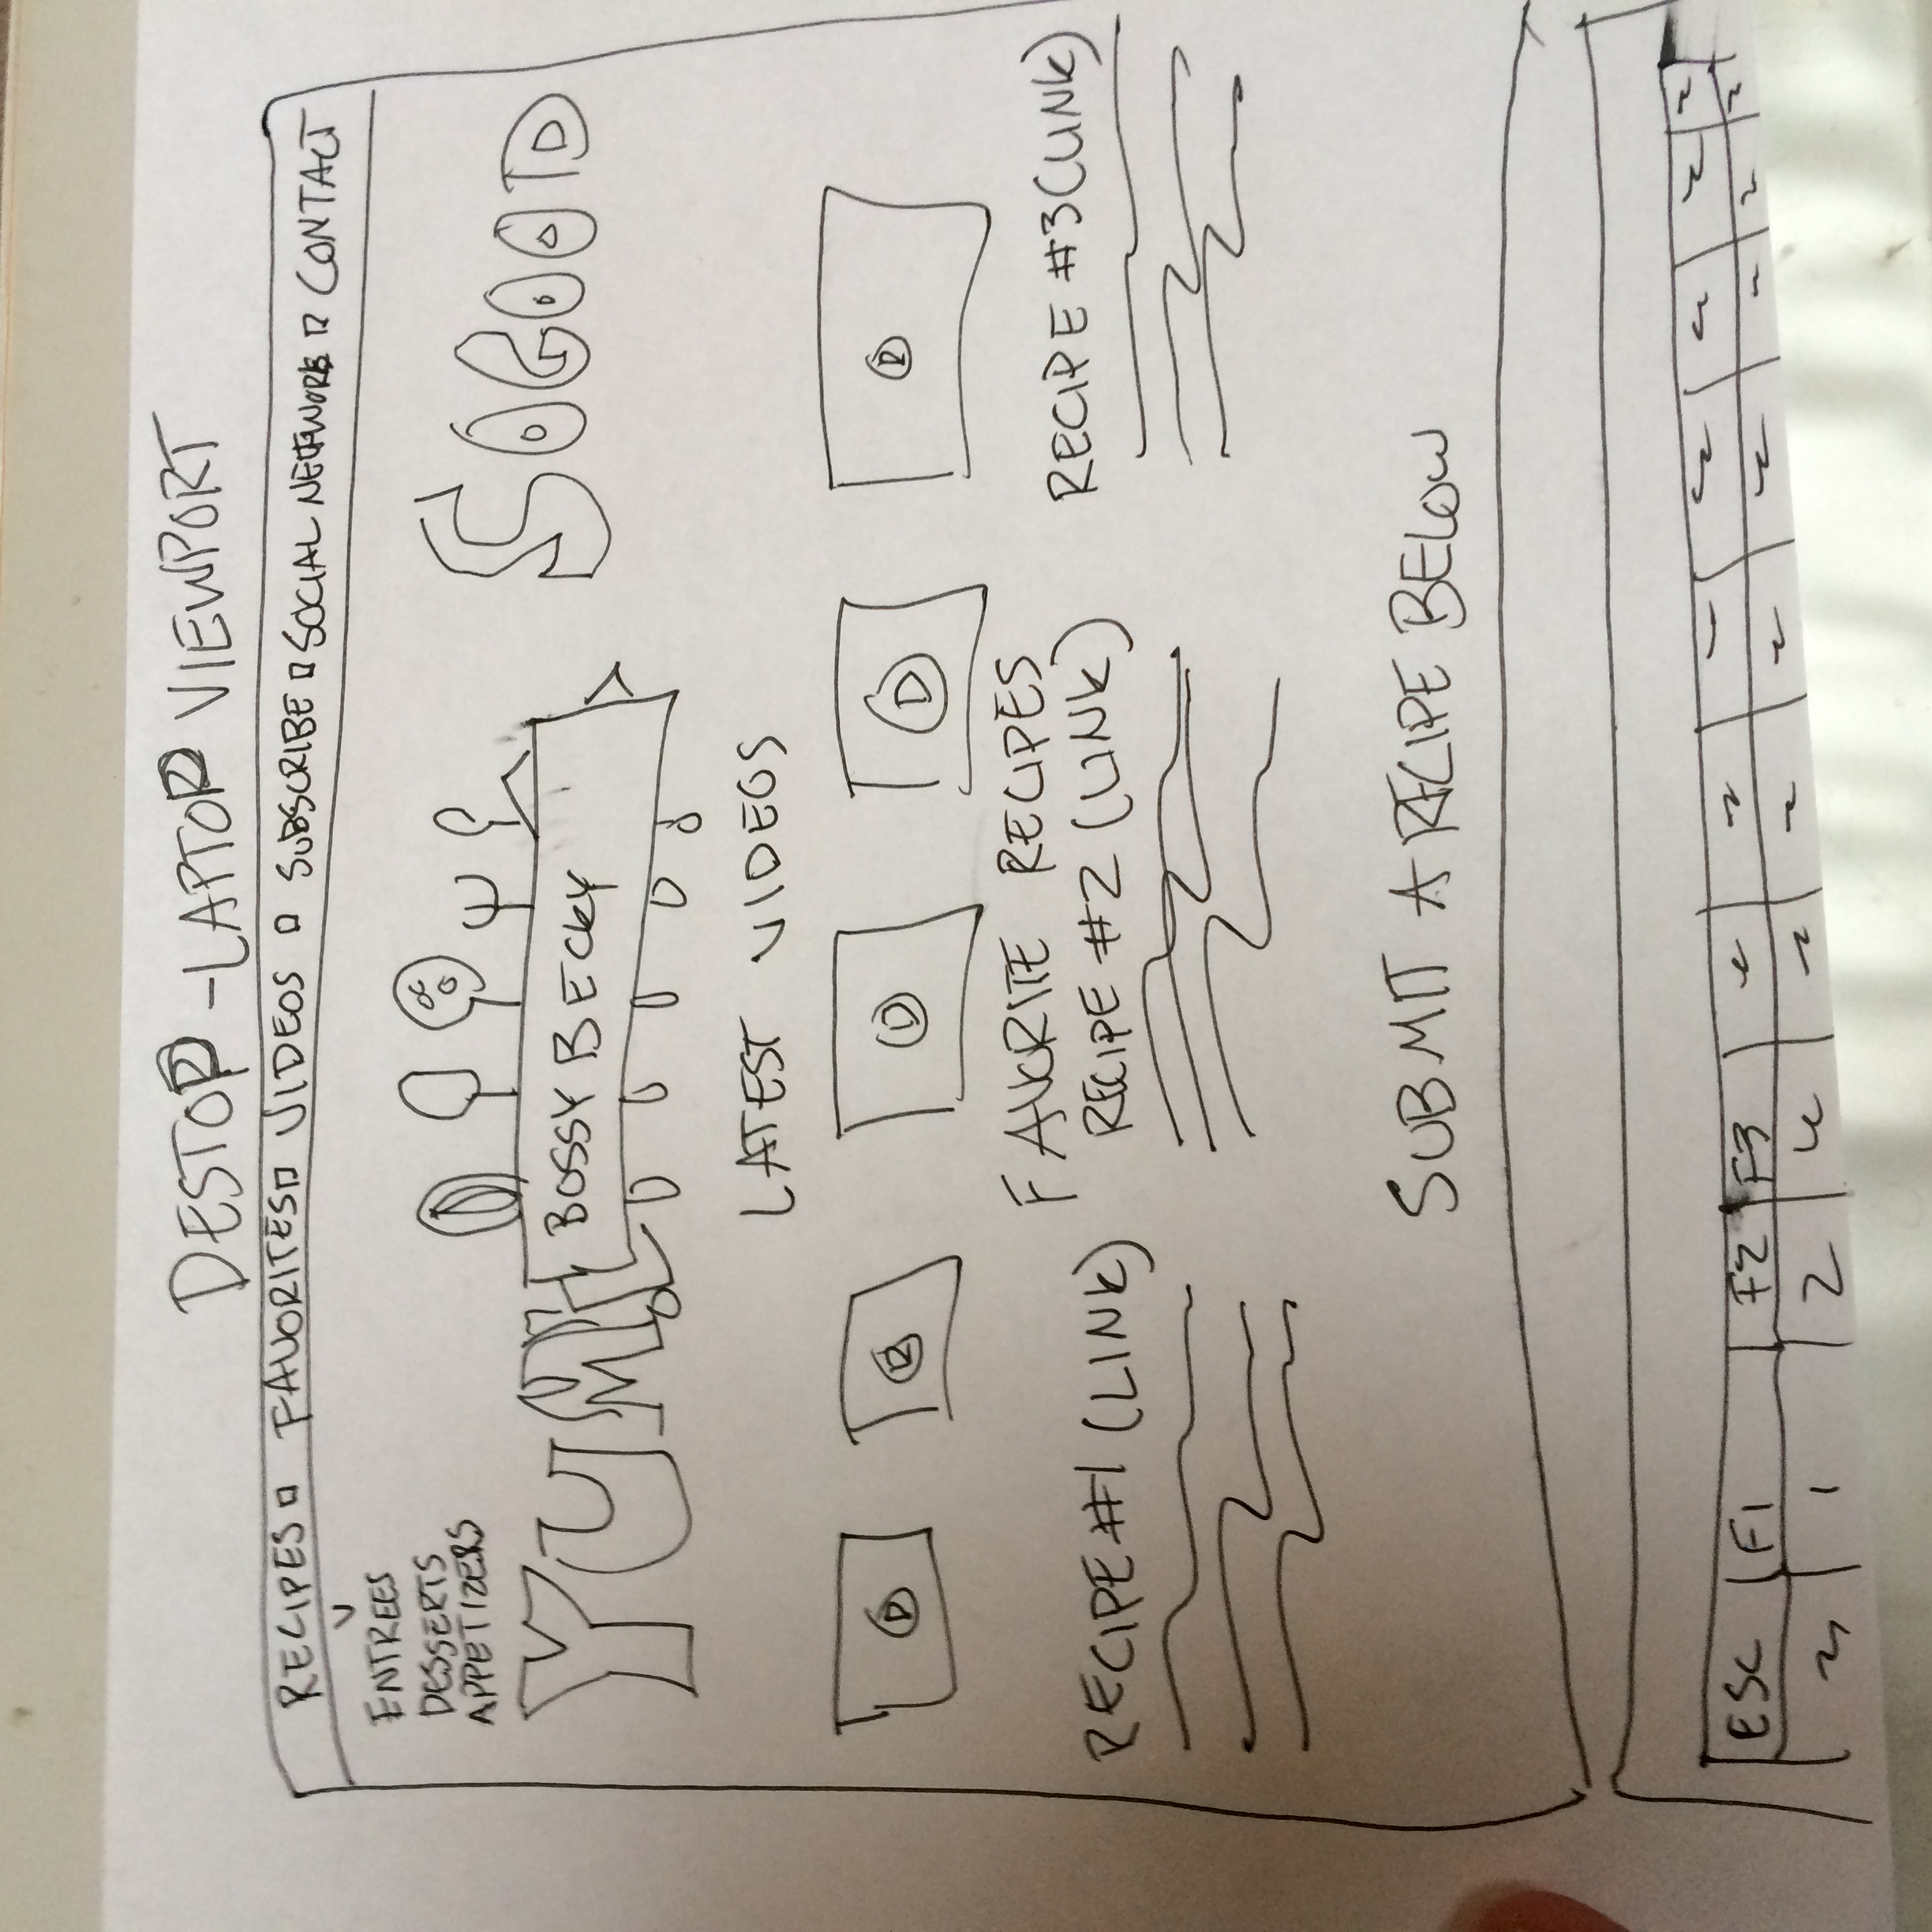 DESTOP - LAPTOP VIEWPORT
RECIPES FAVORITES VIDEOS SUBSCRIBE SOCIAL NETWORK CONTACT
ENTREES
DESSERTS
APPETIZERS
YUM!
BOSSY BECKY
SO GOOD
LATEST VIDEOS
FAVORITE RECIPES
RECIPE #1 (LINK) RECIPE #2 (LINK) RECIPE #3 (LINK)
SUBMIT A RECIPE BELOW
ESC F1 F2 F3
1 2